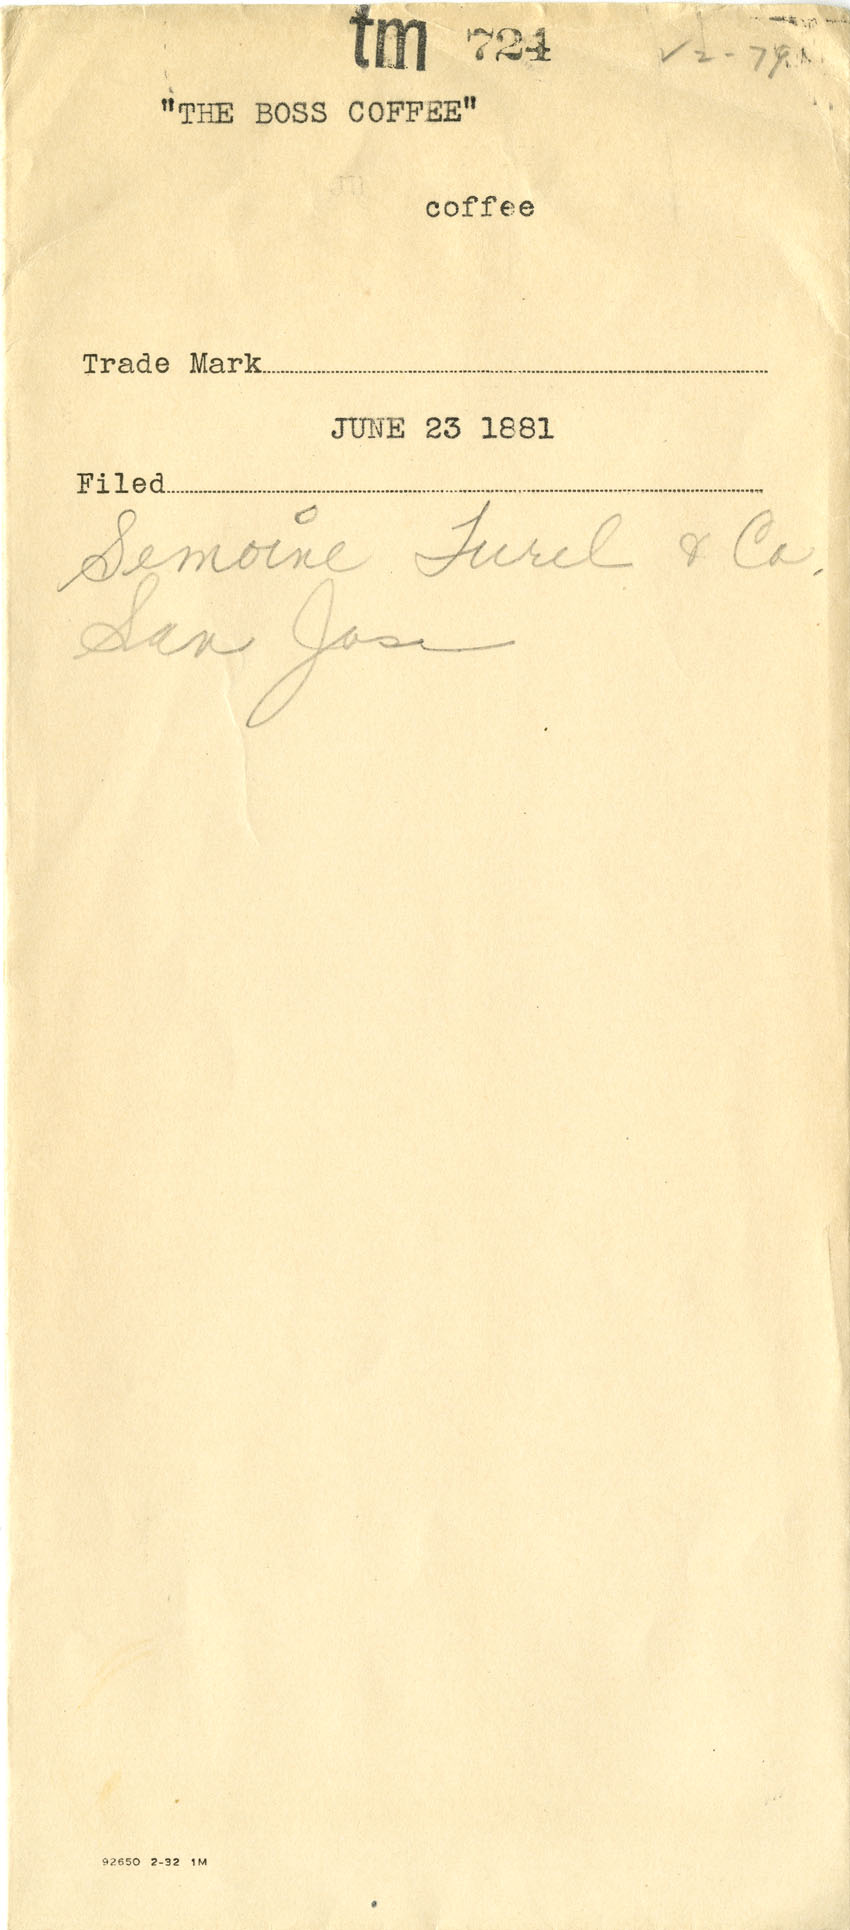 tm 724
√2-79
"THE BOSS COFFEE"
coffee
Trade Mark
JUNE 23 1881
Filed
Semoine Turel & Co.
San Jose
92650 2-32 1M